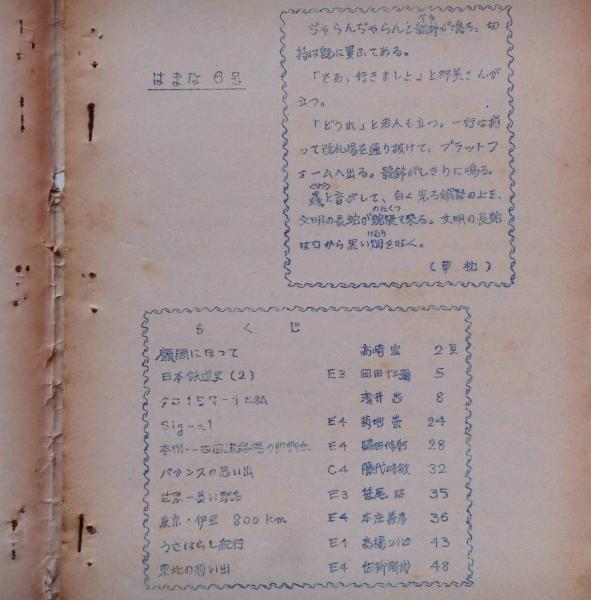 はまな 6号
ぢゃらんぢゃらんと號鈴が鳴る。切
符は既に買ふてある。
「さあ、行きましよ」と那美さんが
立つ。
「どうれ」と老人も立つ。一行は揃
って改札場を通り抜けて、プラットフ
ォームへ出る。號鈴がしきりに鳴る。
轟と音がして、白く光る鐵路の上を、
文明の長蛇が蜿蜒て來る。文明の長蛇
は口から黒い烟を吐く。
(草枕)
もくじ
顧問になって 高崎 宏 2頁
日本鉄道史(2) E3 岡田 5
と私 浅井 8
Signal E4 菊地 24
本州-四国連絡橋の E4 28
バカンスの思い出 C4 藤代 32
世界一長い駅名 E3 笹尾 35
東京・伊豆 800km E4 本庄 36
うさばらし紀行 E1 高橋 43
東北の拾い出 E4 佐 48